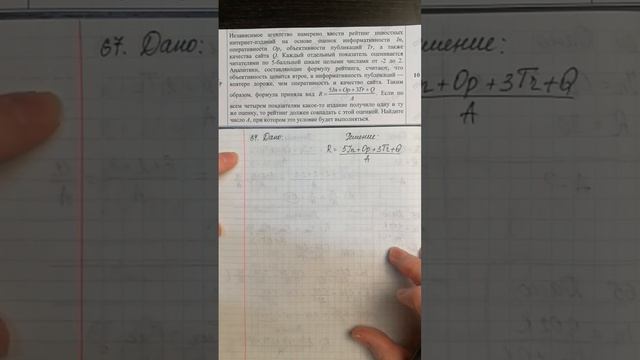 Независимое агентство намерено ввести рейтинг новостных
интернет-изданий на основе оценок информативности In,
оперативности Op, объективности публикаций Tr, а также
качества сайта Q. Каждый отдельный показатель оценивается
читателями по 5-балльной шкале целыми числами от -2 до 2.
Аналитики, составляющие формулу рейтинга, считают, что
объективность ценится втрое, а информативность публикаций —
впятеро дороже, чем оперативность и качество сайта. Таким
образом, формула приняла вид R = (5In + Op + 3Tr + Q) / A. Если по
всем четырем показателям какое-то издание получило одну и ту
же оценку, то рейтинг должен совпадать с этой оценкой. Найдите
число A, при котором это условие будет выполняться.
10
67. Дано:
Решение:
R = (5In + Op + 3Tr + Q) / A
67. Дано:
n + Op + 3Tr + Q
A